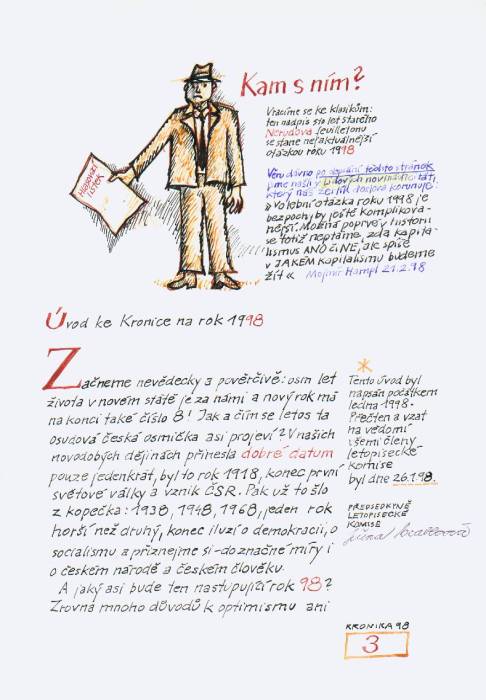 Kam s ním?
Vracíme se ke klasikům:
ten nadpis sto let starého
Nerudova feuilletonu
se stane nejaktuálnější
otázkou roku 1998
HLASOVACÍ
LÍSTEK
Věru dávno po dopsání těchto stránek
jsme našli v Lidových novinách stať,
který náš zdoslova korunuje:
» Volební otázka roku 1998 je
bezpoch. by ještě komplikova-
nější. Možná poprvé v historii
se totiž neptáme, zda kapita-
lismus ANO či NE, ale spíše
v JAKÉM kapitalismu budeme
žít « Mojmír Hampl 21.2.98
Úvod ke Kronice na rok 1998
Začneme nevědecky a pověrčivě: osm let
života v novém státě je za námi a nový rok má
na konci také číslo 8! Jak a čím se letos ta
osudová česká osmička asi projeví? V našich
novodobých dějinách přinesla dobré datum
pouze jedenkrát, byl to rok 1918, konec první
světové války a vznik ČSR. Pak už to šlo
z kopečka: 1938, 1948, 1968, jeden rok
horší než druhý, konec iluzí o demokracii, o
socialismu a přiznejme si – do značné míry i
o českém národě a českém člověku.
A jaký asi bude ten nastupující rok 98?
Zrovna mnoho důvodů k optimismu ani
*
Tento úvod byl
napsán počátkem
ledna 1998.
Přečten a vzat
na vědomí
všemi členy
letopisecké
komise
byl dne 26.1.98.
PŘEDSEDKYNĚ
LETOPISECKÉ
KOMISE
KRONIKA 98
3